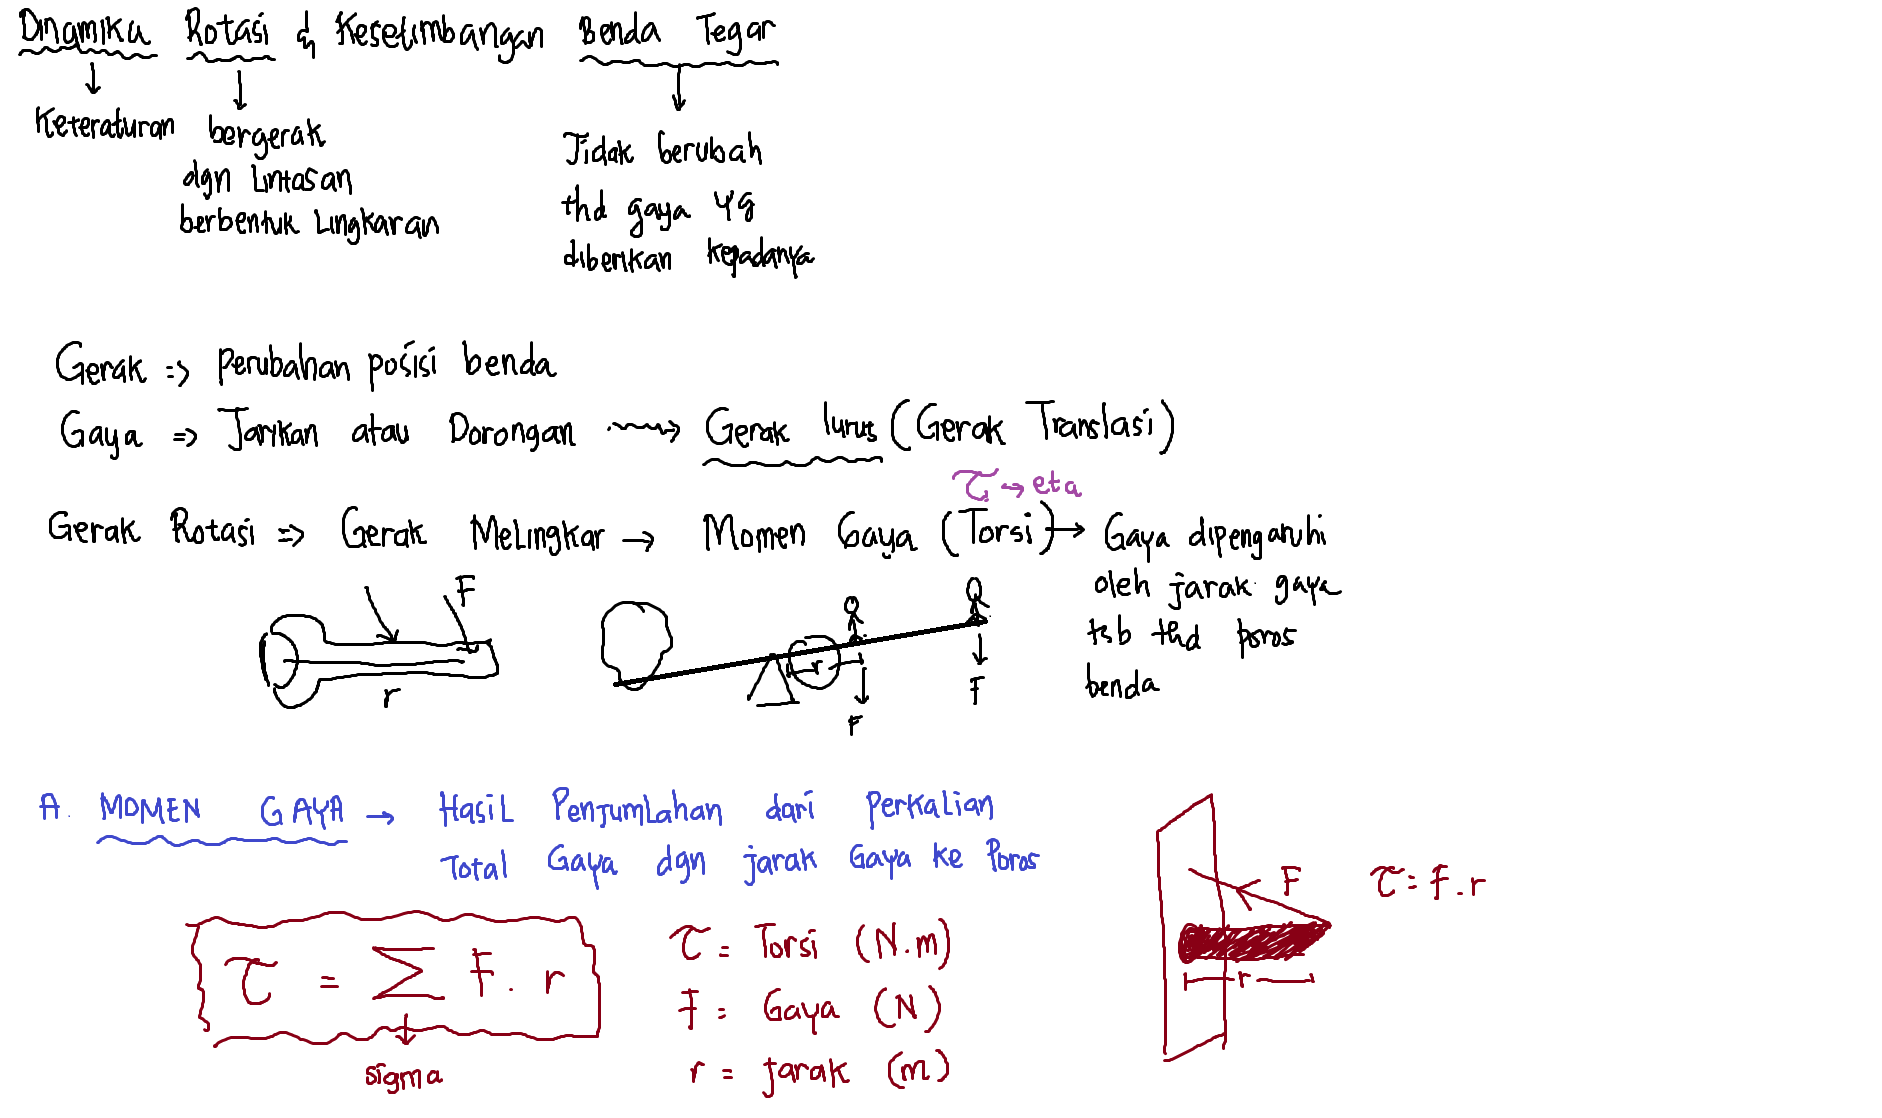 Dinamika Rotasi & Kesetimbangan Benda Tegar
Keteraturan
bergerak
dgn lintasan
berbentuk lingkaran
Tidak berubah
thd gaya yg
diberikan kepadanya
Gerak => Perubahan posisi benda
Gaya => Tarikan atau Dorongan → Gerak lurus (Gerak Translasi)
τ → eta
Gerak Rotasi => Gerak Melingkar → Momen Gaya (Torsi) → Gaya dipengaruhi
oleh jarak gaya
tsb thd poros
benda
F
r
r
F
F
A. MOMEN GAYA → Hasil Penjumlahan dari Perkalian
Total Gaya dgn jarak Gaya ke Poros
τ = Σ F . r
sigma
τ = Torsi (N.m)
F = Gaya (N)
r = jarak (m)
F
r
τ = F . r